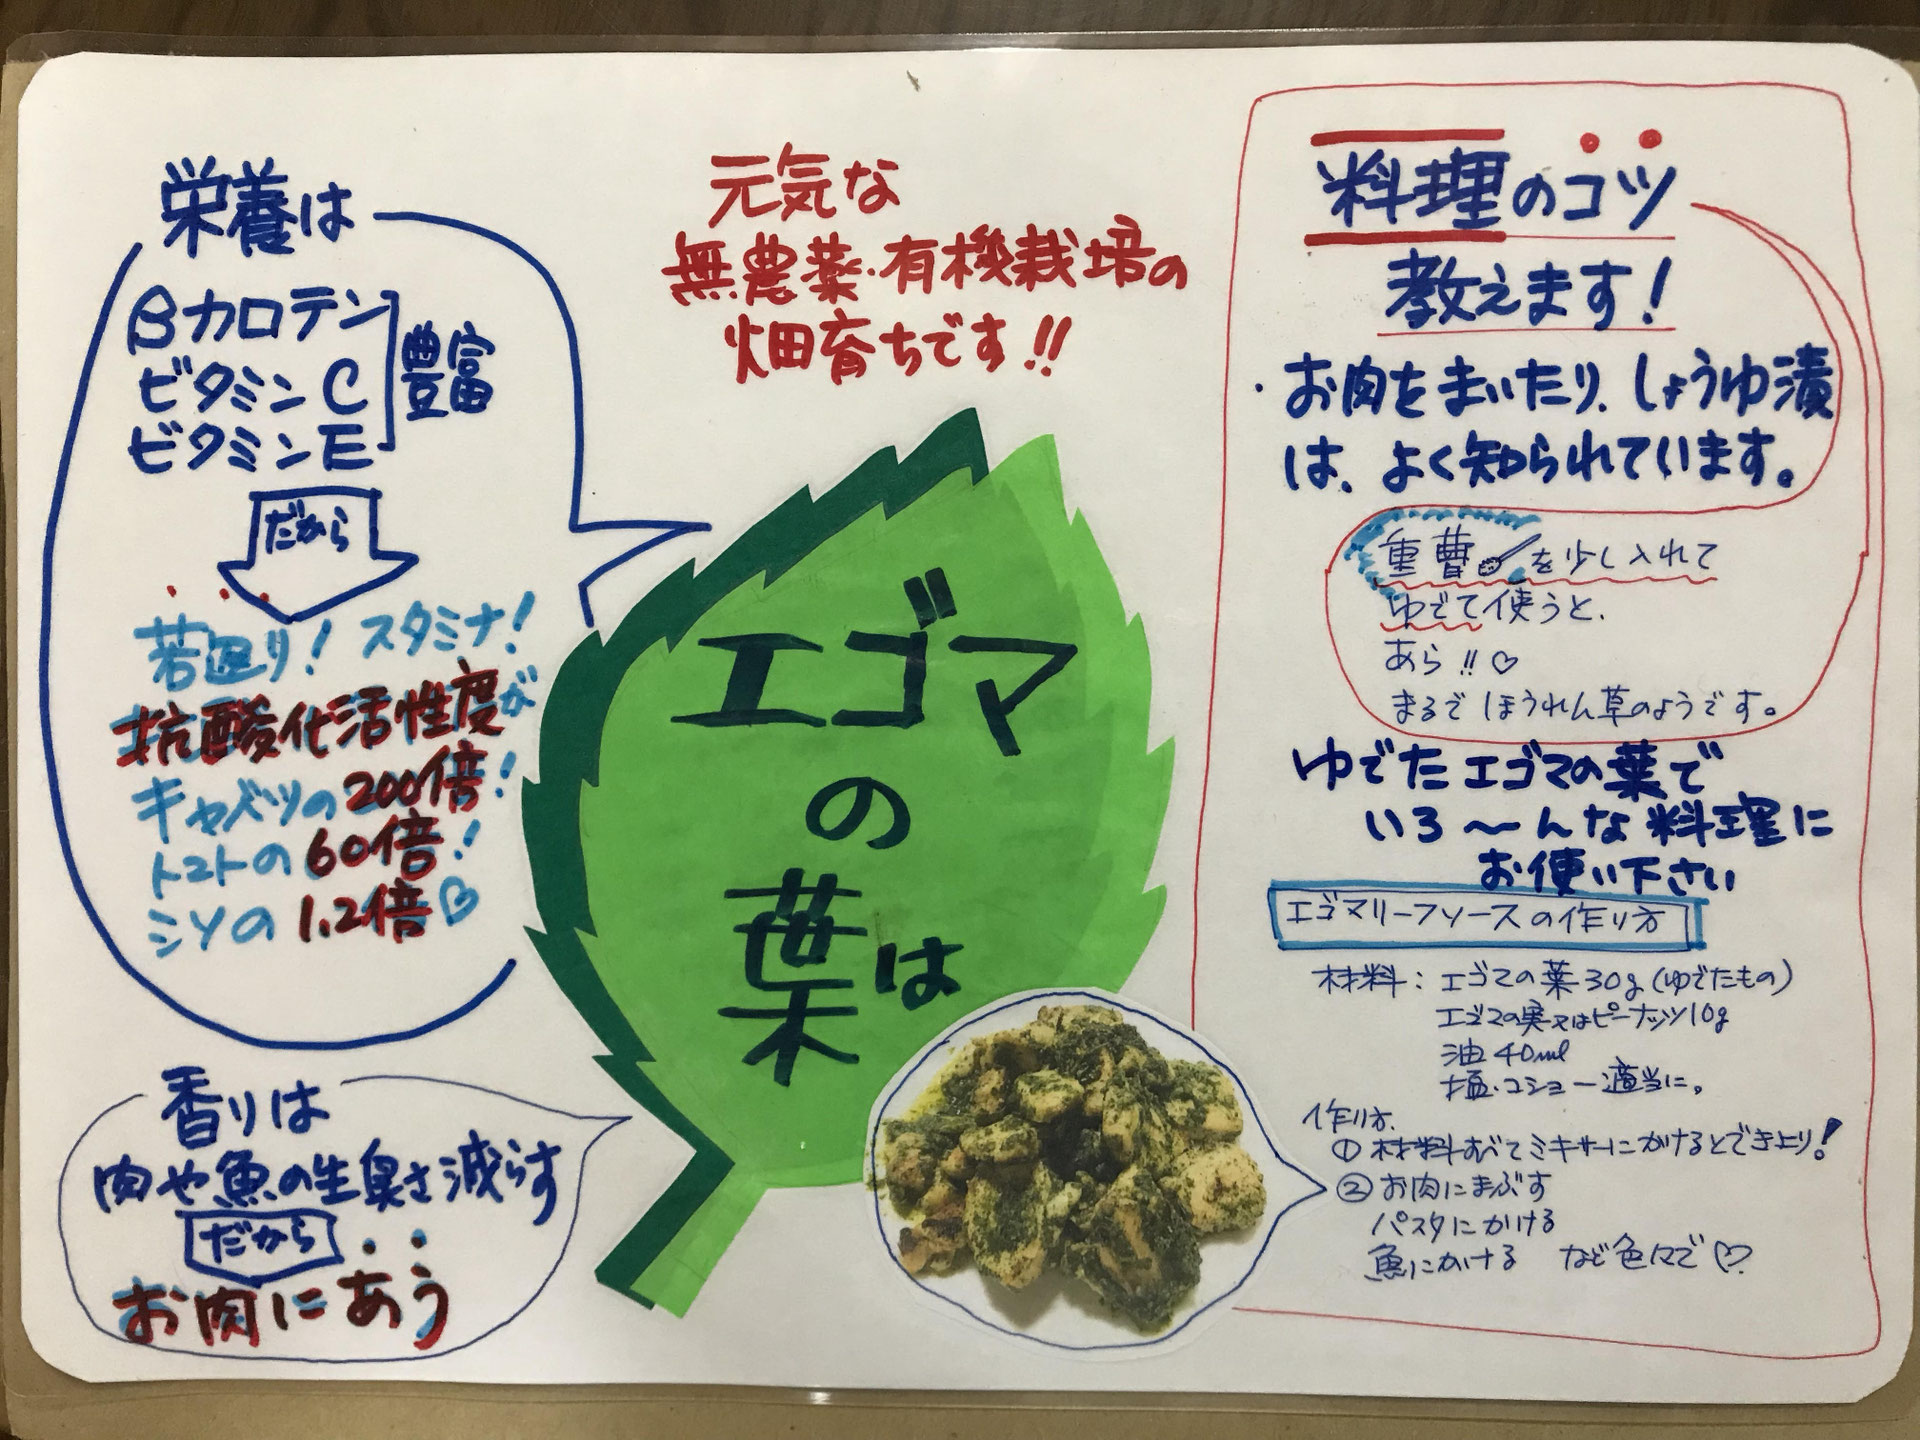 元気な
無農薬・有機栽培の
畑育ちです!!
エゴマ
の
葉は
栄養は
βカロテン
ビタミンC
ビタミンE
豊富
だから
若返り! スタミナ!
抗酸化活性度が
キャベツの200倍!
トマトの60倍!
シソの1.2倍♡
香りは
肉や魚の生臭さ減らす
だから
お肉にあう
料理のコツ
教えます!
・お肉をまいたり、しょうゆ漬
は、よく知られています。
重曹を少し入れて
ゆでて使うと、
あら!!♡
まるでほうれん草のようです。
ゆでたエゴマの葉で
いろ〜んな料理に
お使い下さい
エゴマリーフソースの作り方
材料:エゴマの葉30g(ゆでたもの)
エゴマの実又はピーナッツ10g
油40ml
塩・コショー適当に。
作り方.
① 材料すべてミキサーにかけるとでき上り!
② お肉にまぶす
パスタにかける
魚にかける など色々で♡